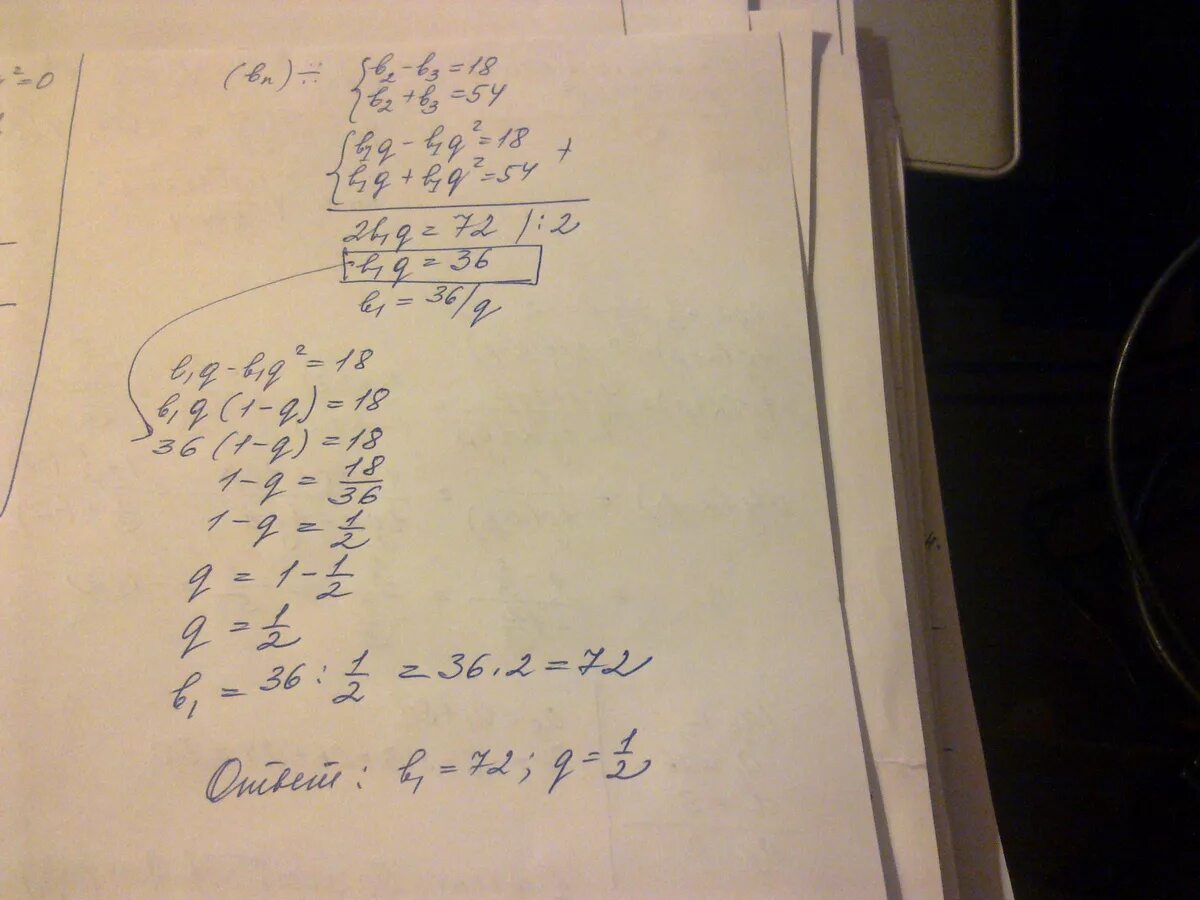 ²=0
(bₙ) ÷ { b₂ - b₃ = 18
b₂ + b₃ = 54
{ b₁q - b₁q² = 18 +
b₁q + b₁q² = 54
2b₁q = 72 |:2
b₁q = 36
b₁ = 36/q
b₁q - b₁q² = 18
b₁q (1-q) = 18
36 (1-q) = 18
1-q = 18/36
1-q = 1/2
q = 1 - 1/2
q = 1/2
b₁ = 36 : 1/2 = 36 . 2 = 72
Ответ: b₁ = 72; q = 1/2